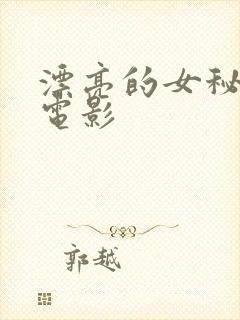 漂亮的女秘
電影
郭越